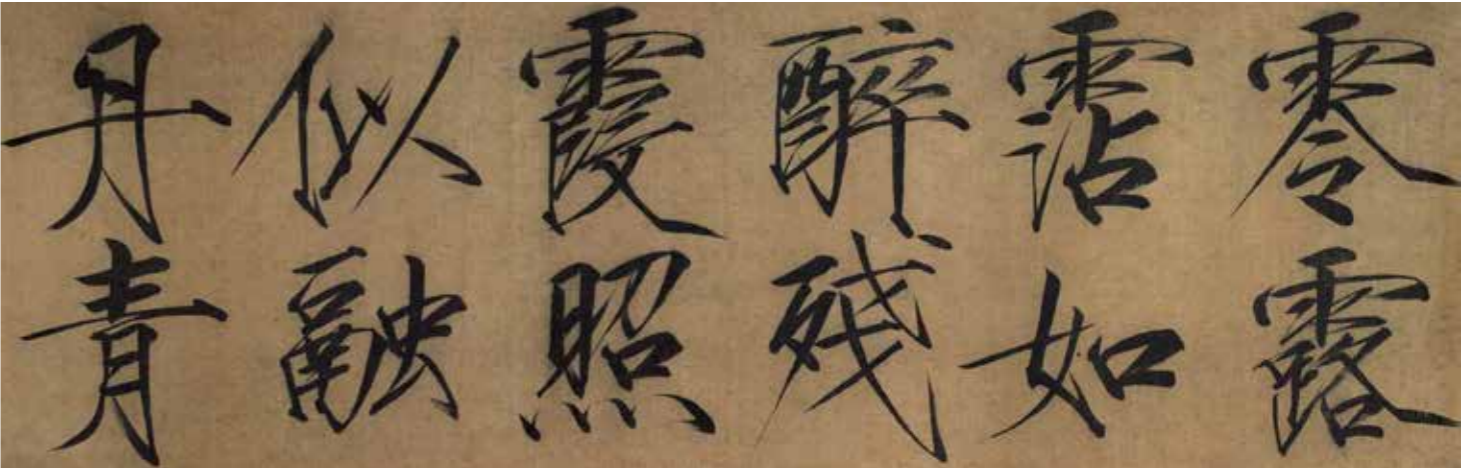 零露
霑如
醉殘
霞照
似融
丹青